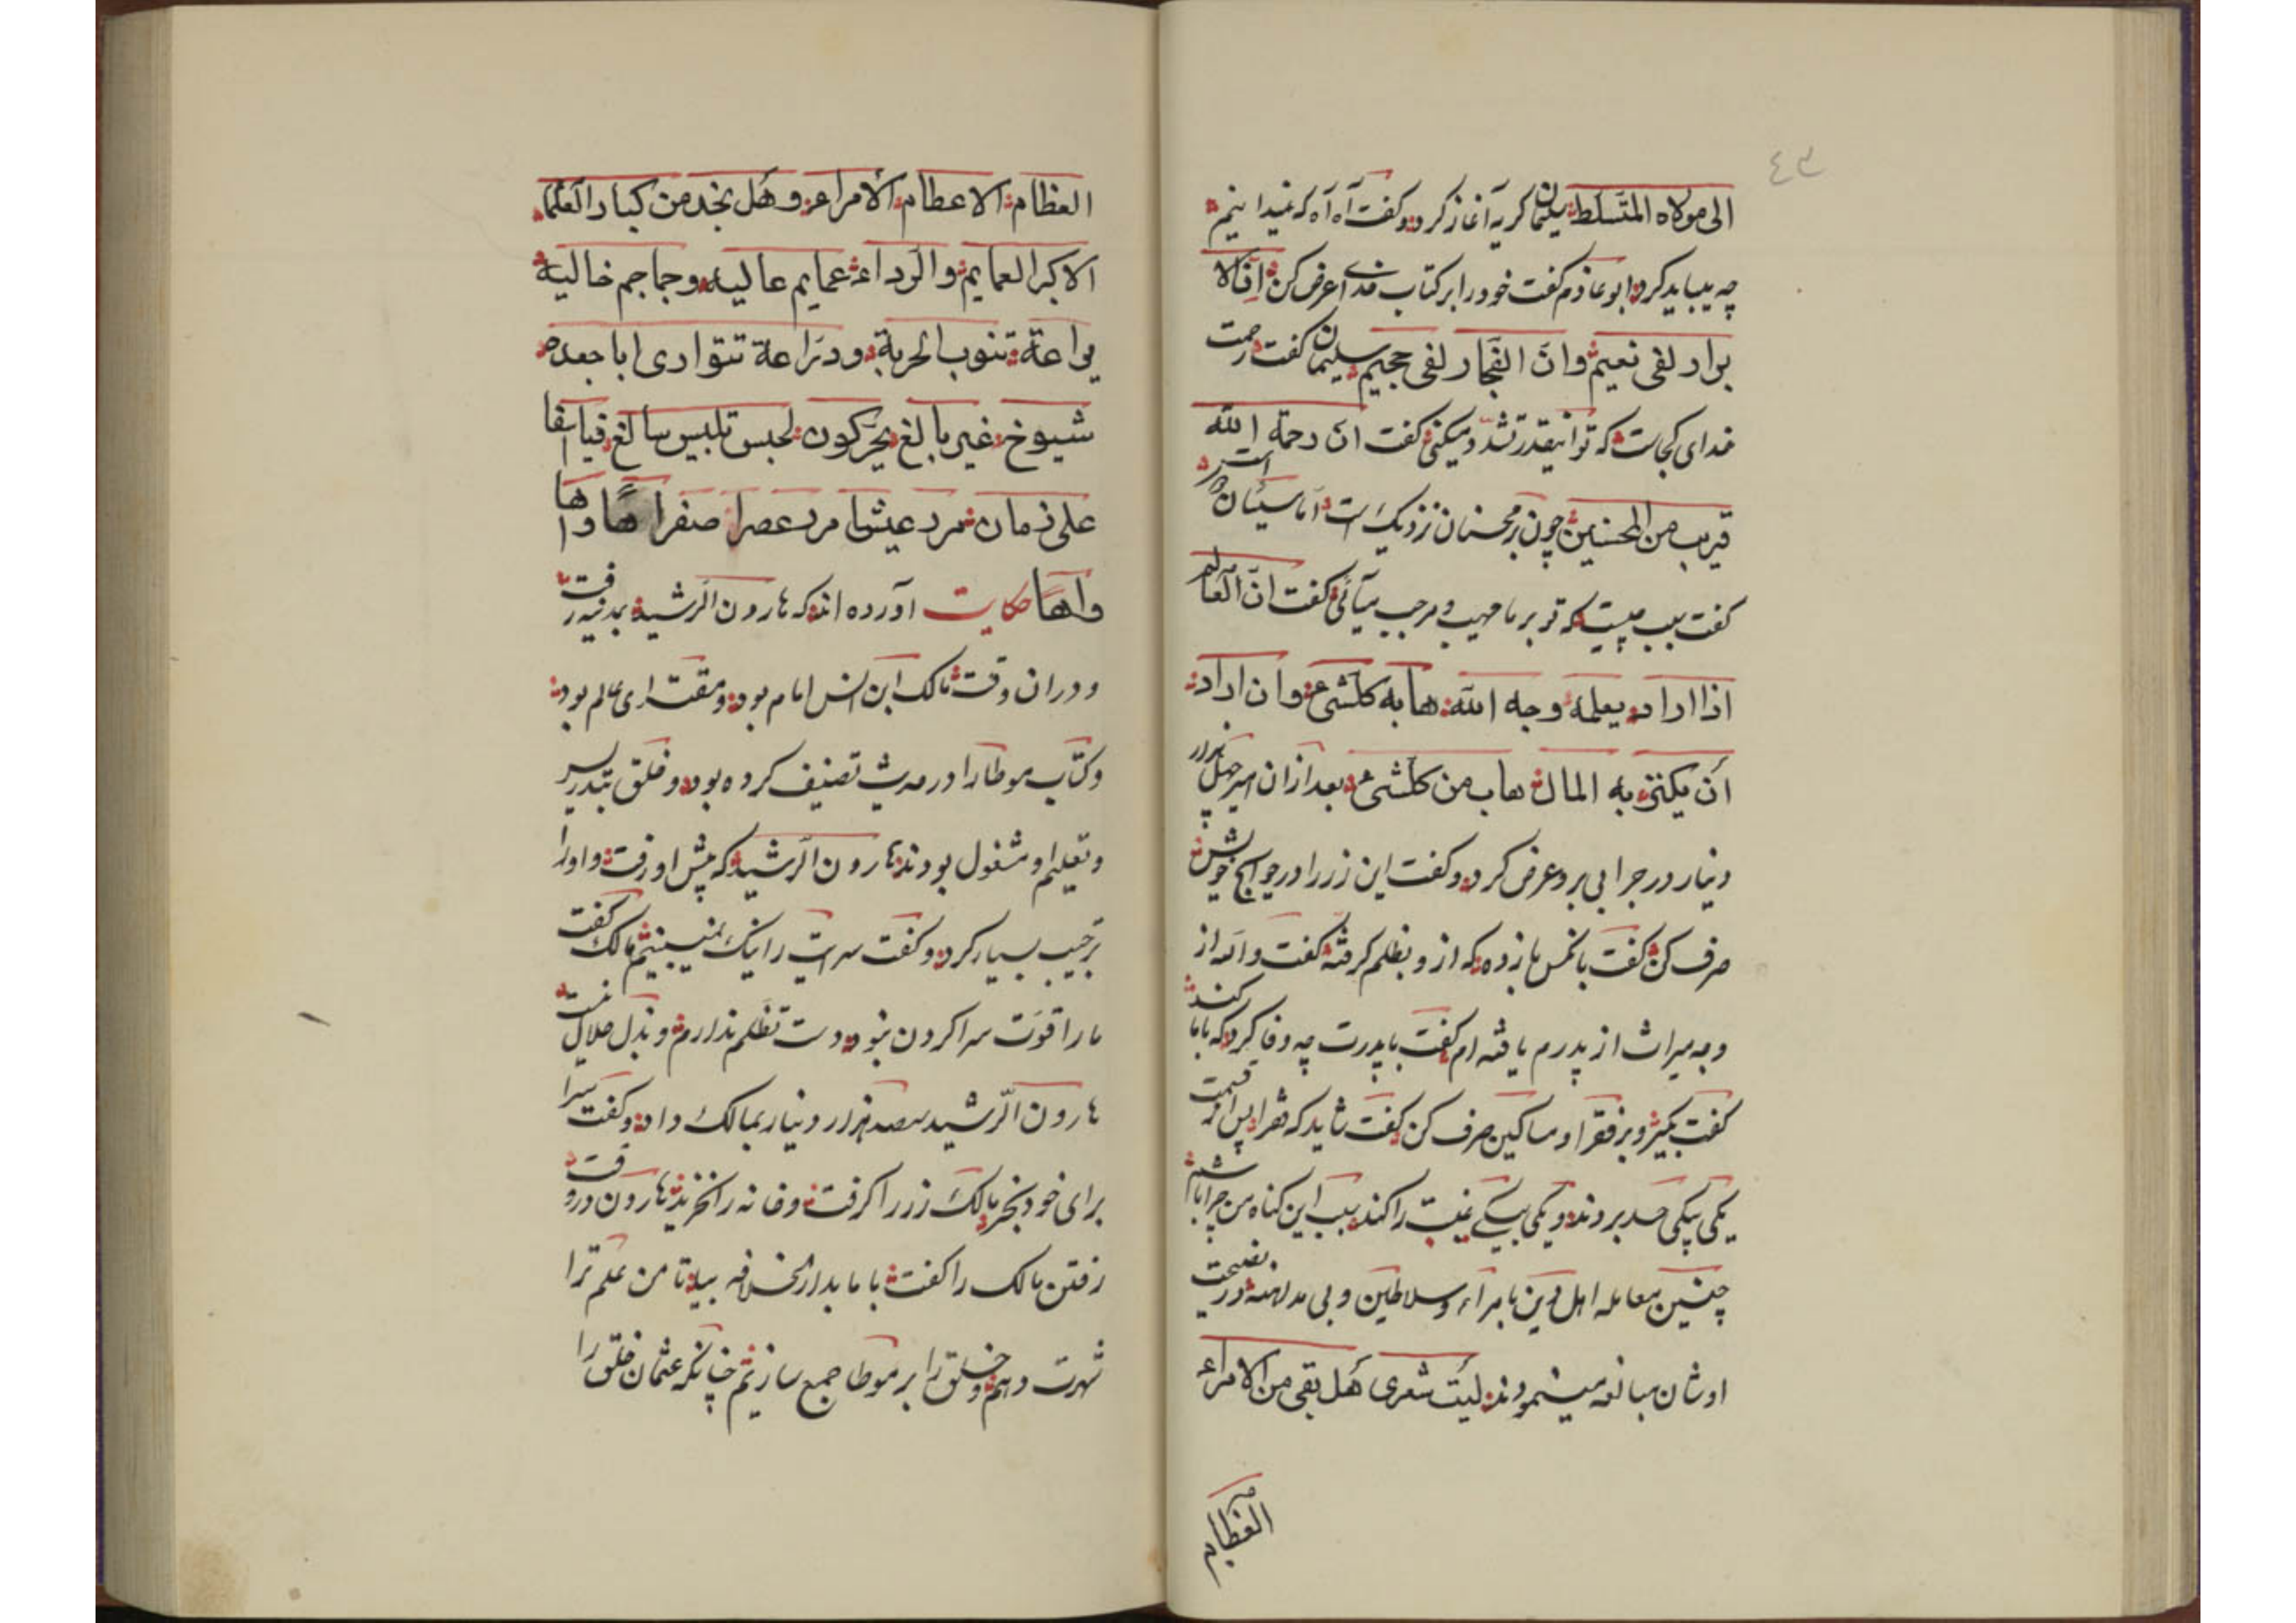 ٤٣
الی مولاه المتسلط سلیمان کریه آغاز کرد و کفت آه آه که نمیدانیم
چه میباید کرد ابو عاذم کفت خود را بر کتاب خدای عرض کن ان الا
برار لفی نعیم وان الفجار لفی جحیم سلیمان کفت رحمت
خدای کجاست که تو اینقدر تشدد میکنی کفت ان رحمة الله
قریب من المحسنین چون بر محسنان نزدیک است اما سیئان
کفت سبب چیست که تو بر ما مهیب و مرجب میآئی کفت ان العالم
اذا اراد بعلمه وجه الله هابه کلشیء وان اراد
أن یکتنز به المال هاب من کلشیء بعد از ان امیر چهل هزار
دینار در جرابی برد عرض کرد و کفت این زر را در حوایج خویش
صرف کن کفت بانکس بازده که ازو بظلم کرفتۀ کفت والله از
وجه میراث از پدرم یافته ام کفت با پدرت چه وفا کرد که با ما کند
کفت بکیر و بر فقرا و مساکین صرف کن کفت شاید که فقرا پس از قسمت
یکی بیکی حسد بردند و یکی بیکی غیبت را کند سبب این کناه من چرا باشم
چنین معامله اهل دین با مراء و سلاطین و بی مداهنه در نصیحت
اوشان مبالغه مینمودند لیت شعری هل بقی من الامراء
العظام
العظام الا عظام الأمراء وهل نجد من کبار العلماء
الا کبر العمایم والرداء عمایم عالیه وجماجم خالیة
یراعة تنوب الحربة ودراعة تتواری اباجعده
شیوخ غیر بالغ یحرکون لحبس تلبیس سالغ فیا اسفا
علی زمان مرد عیشا مرد عصرا صفرا هًا واها
واهًا حکایت آورده اند که هارون الرشید بمدینه رفت
و دران وقت مالک ابن انس امام بود و مقتدای عالم بود
و کتاب موطا را در حدیث تصنیف کرده بود و خلق بتدریس
و تعلیم او مشغول بودند هارون الرشید که پیش او رفت و اورا
ترحیب بسیار کرد و کفت سرایت را نیک نمیبینیم مالک کفت
ما را قوت سرا کردن نبود و دست تظلم نداریم و بذل حلال نیست
هارون الرشید سصد هزار دینار بمالک داد و کفت سرا
برای خود بخر مالک زر را کرفت و خانه را نخرید هارون در وقت
رفتن مالک را کفت با ما بدار الخلافه بیا تا من علم ترا
شهرت دهم و خلق را بر موطا جمع سازیم چنانکه عثمان خلق را